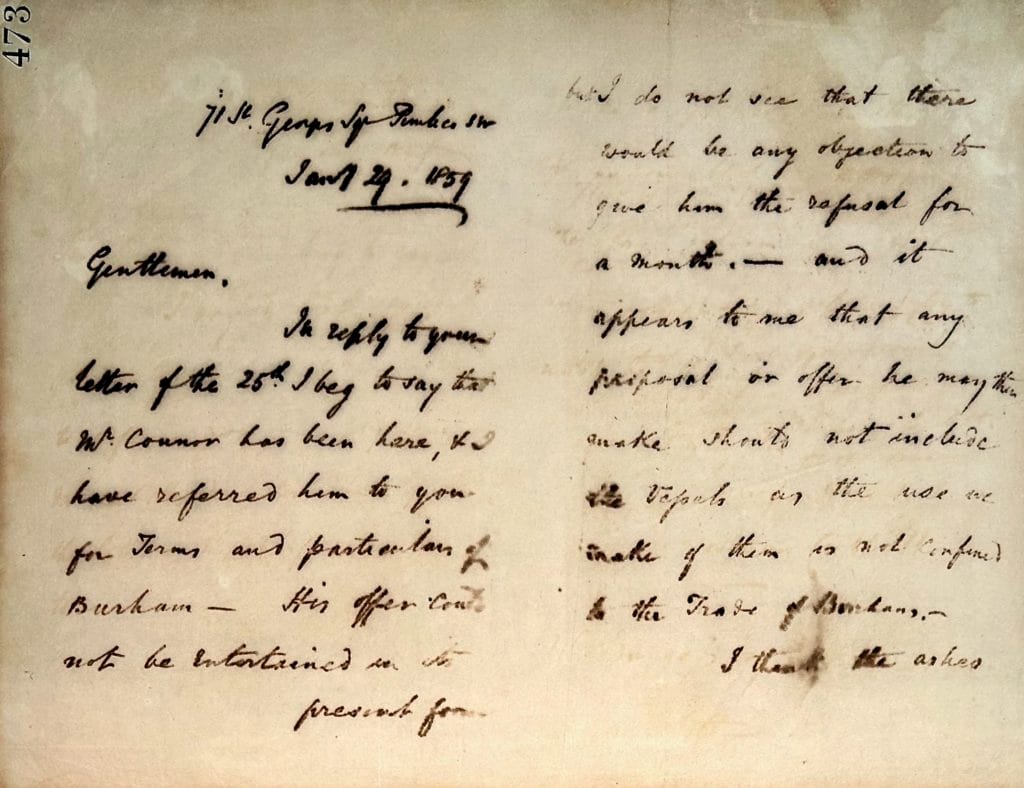 473
71 St. Georges Sqr Pimlico SW
Jany 29. 1859
Gentlemen,
In reply to your
letter of the 25th I beg to say that
Mr. Connor has been here, & I
have referred him to you
for Terms and particulars of
Burham — His offer could
not be entertained in its
present form
but I do not see that there
would be any objection to
give him the refusal for
a month. — and it
appears to me that any
proposal or offer he may then
make should not include
the Vessels as the use we
make of them is not confined
to the Trade of Burham. —
I think the ashes